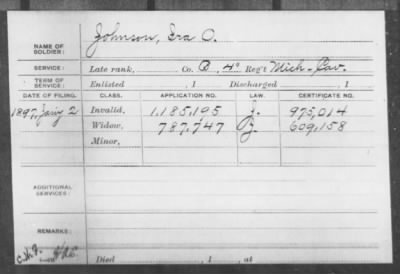 Johnson, Ira O.
NAME OF SOLDIER:
SERVICE: Late rank, Co. B, 4" Reg't Mich. Cav.
TERM OF SERVICE: Enlisted , 1 Discharged , 1
DATE OF FILING. CLASS. APPLICATION NO. LAW. CERTIFICATE NO.
1897, Jan'y 2 Invalid, 1.185,105 J. 975,014
Widow, 787,747 J. 609,158
Minor,
ADDITIONAL SERVICES:
REMARKS:
Died , 1 , at